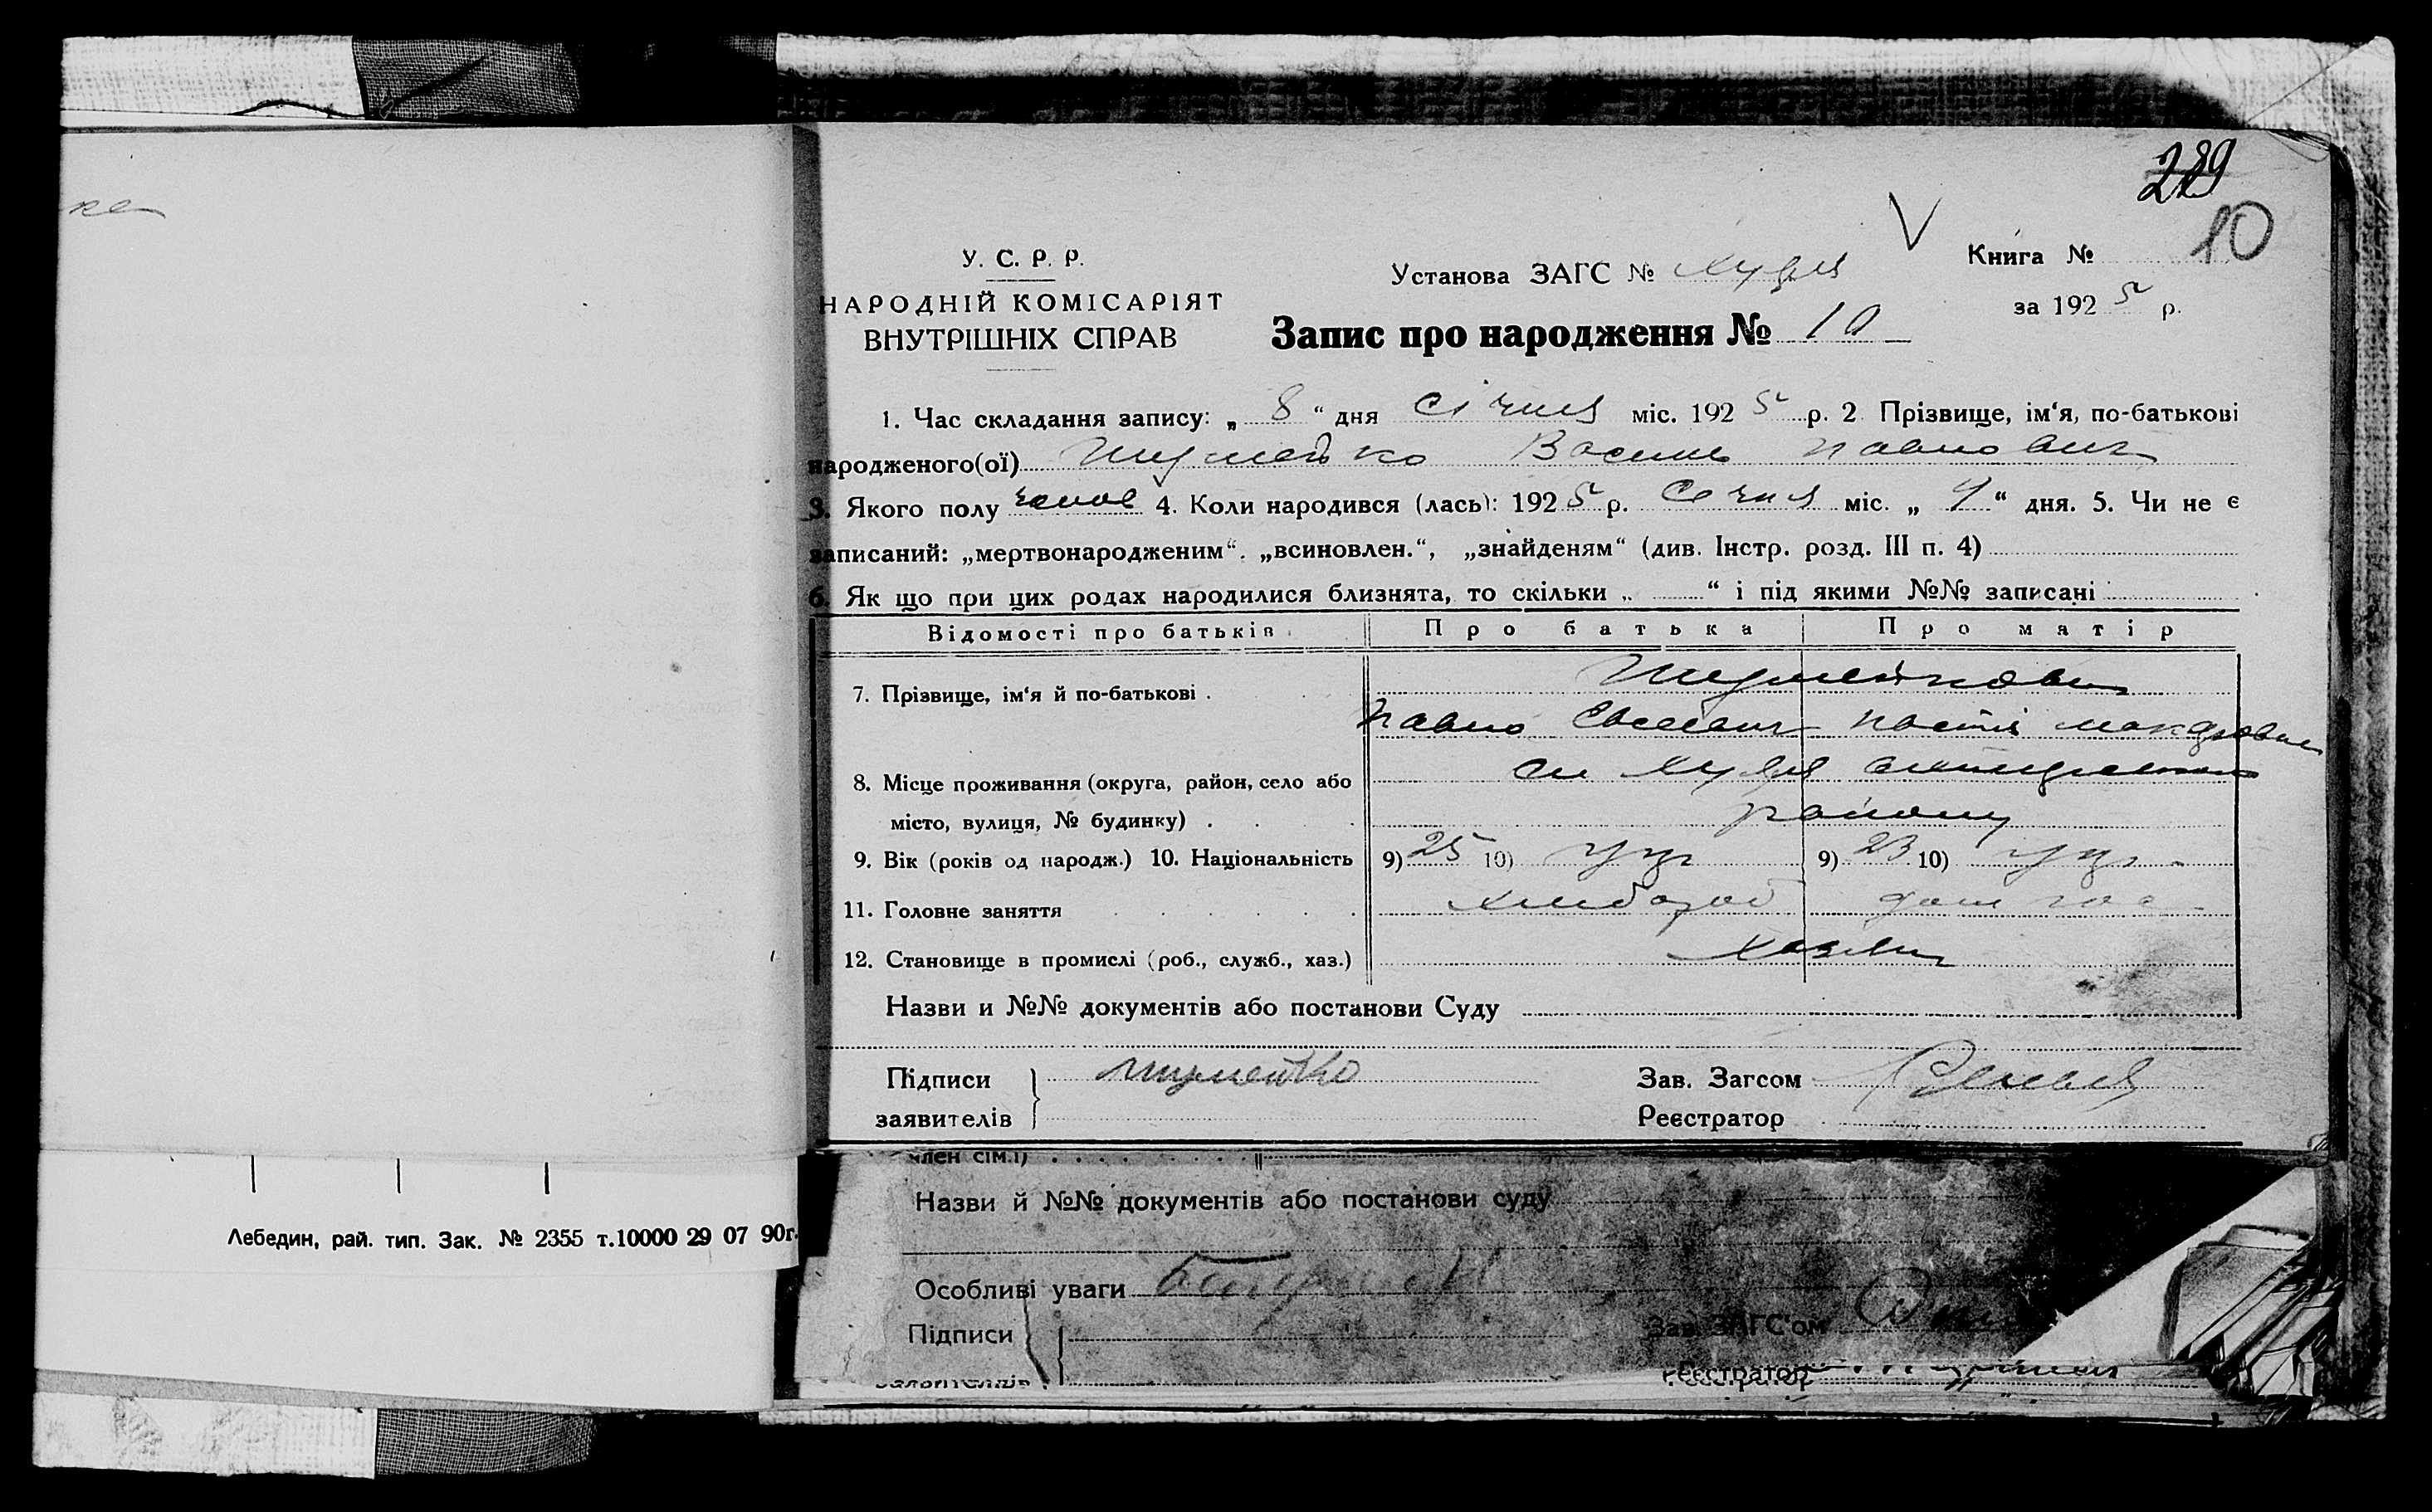 ке
289
10
У. С. Р. Р.
НАРОДНІЙ КОМІСАРІЯТ
ВНУТРІШНІХ СПРАВ
Установа ЗАГС № Хухря
Книга №
за 1925 р.
Запис про народження № 10
1. Час складання запису: „ 8 “ дня Січня міс. 1925 р. 2 Прізвище, ім‘я, по-батькові
народженого(ої) Шумейко Василь Павлович
3. Якого полу чолов 4. Коли народився (лась): 1925 р. Січня міс. „ 4 “ дня. 5. Чи не є
записаний: „мертвонародженим“. „всиновлен.“, „знайденям“ (див. Інстр. розд. III п. 4)
6. Як що при цих родах народилися близнята, то скільки „ “ і під якими №№ записані
Відомості про батьків. Про батька Про матір
7. Прізвище, ім‘я й по-батькові . Шумейкови
Павло Настя Макаровна
8. Місце проживання (округа, район, село або сл Хухря
місто, вулиця, № будинку) . району
9. Вік (років од народж.) 10. Національність 9) 25 10) укр 9) 23 10) укр.
11. Головне заняття хлібороб дом гос
12. Становище в промислі (роб., служб., хаз.) Хазяїн
Назви и №№ документів або постанови Суду
Підписи Шумейко Зав. Загсом
заявителів Реєстратор
член сім.ї)
Назви й №№ документів або постанови суду
Особливі уваги
Підписи Зав. ЗАГС'ом
Реєстратор
Лебедин, рай. тип. Зак. № 2355 т.10000 29 07 90г.